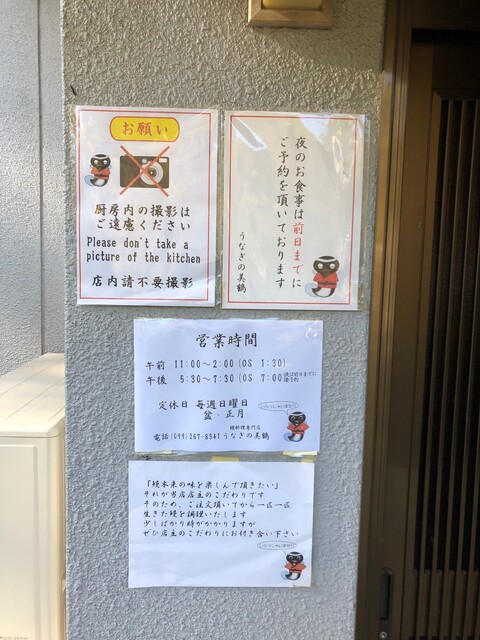 お願い
厨房内の撮影は
ご遠慮ください
Please don't take a
picture of the kitchen
店内請不要撮影
夜のお食事は前日までに
ご予約を頂いております
うなぎの美鶴
営業時間
午前 11:00～2:00 (OS 1:30)
午後 5:30～7:30 (OS 7:00)
夜は前日までに
定休日 毎週日曜日
盆・正月
鰻料理専門店
電話 (099)267-8341 うなぎの美鶴
いらっしゃいませ!!
「鰻本来の味を楽しんで頂きたい」
それが当店店主のこだわりです
そのため、ご注文頂いてから一匹一匹
生きた鰻を調理いたします
少しばかり時がかかりますが
ぜひ店主のこだわりにお付き合い下さい
いらっしゃいませ!!